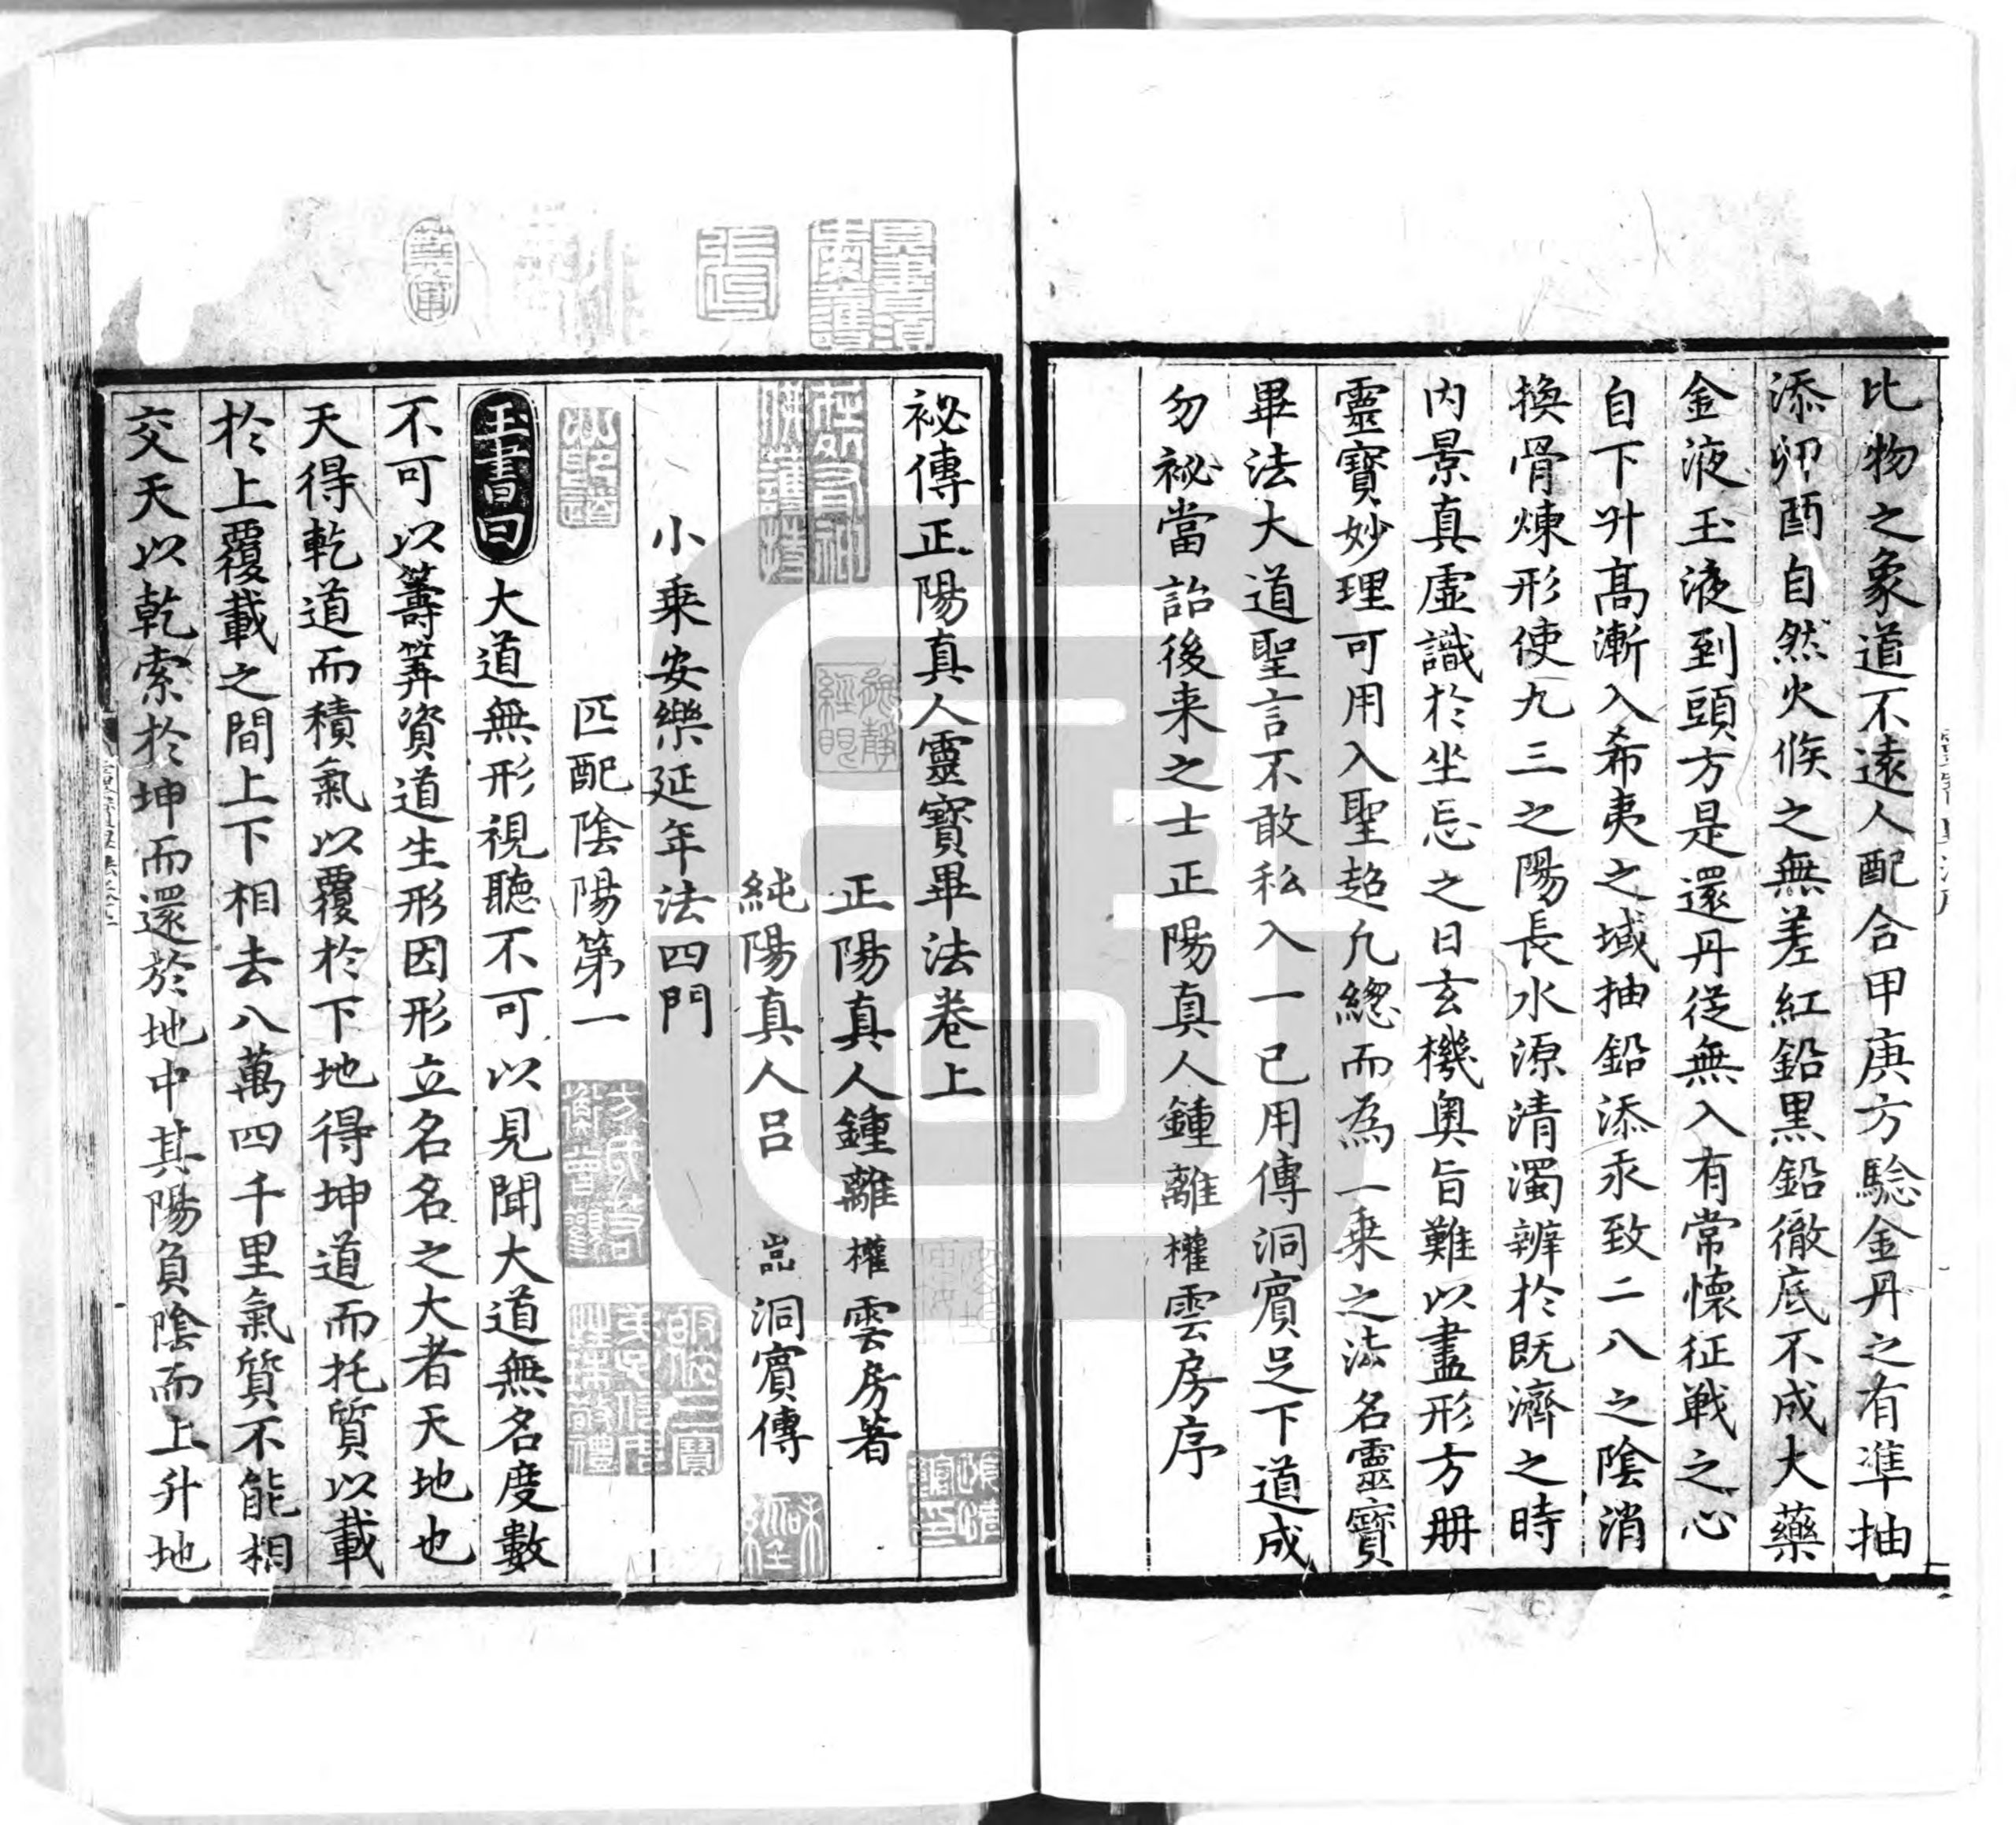 比物之象道不遠人配合甲庚方驗金丹之有準抽
添卯酉自然火候之無差紅鉛黑鉛徹底不成大藥
金液玉液到頭方是還丹從無入有常懷征戰之心
自下升髙漸入希夷之域抽鉛添汞致二八之陰消
換骨煉形使九三之陽長水源清濁辨於既濟之時
内景真虛識於坐忘之日玄機奧旨難以盡形方冊
靈寶妙理可用入聖超凡總而為一乗之法名靈寶
畢法大道聖言不敢私入一已用傳洞賓足下道成
勿祕當詒後来之士正陽真人鍾離權雲房序
祕傳正陽真人靈寶畢法卷上
正陽真人鍾離權雲房著
純陽真人吕嵒洞賓傳
小乗安樂延年法四門
匹配陰陽第一
玉書曰大道無形視聽不可以見聞大道無名度數
不可以籌筭資道生形因形立名名之大者天地也
天得乾道而積氣以覆於下地得坤道而托質以載
於上覆載之間上下相去八萬四千里氣質不能相
交天以乾索於坤而還於地中其陽負陰而上升地